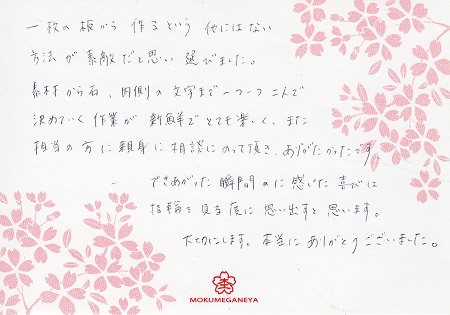 一枚の板から 作るという 他にはない
方法が 素敵だと思い 選びました。
素材から石、内側の文字まで一つ一つ二人で
決めていく作業が 新鮮でとても楽しく、また
担当の方に親身に相談にのって頂き、ありがたかったです。
できあがった瞬間のに感じた喜びは
指輪を見る度に思い出すと思います。
大切にします。本当にありがとうございました。
MOKUMEGANEYA